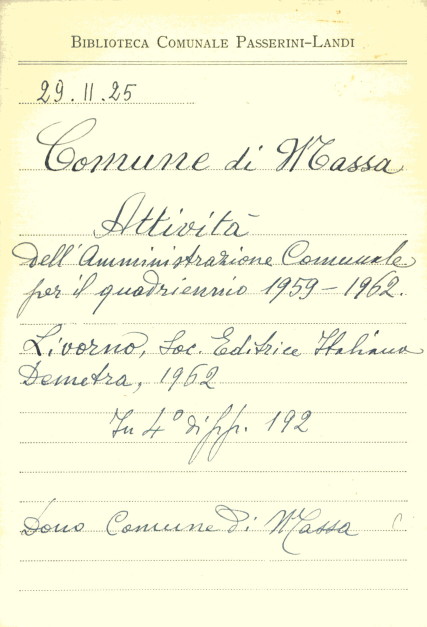 BIBLIOTECA COMUNALE PASSERINI-LANDI
29.11.25
Comune di Massa
Attività
dell'Amministrazione Comunale
per il quadriennio 1959-1962.
Livorno, Soc. Editrice Italiana
Demetra, 1962
In 4° di pp. 192
Dono Comune di Massa